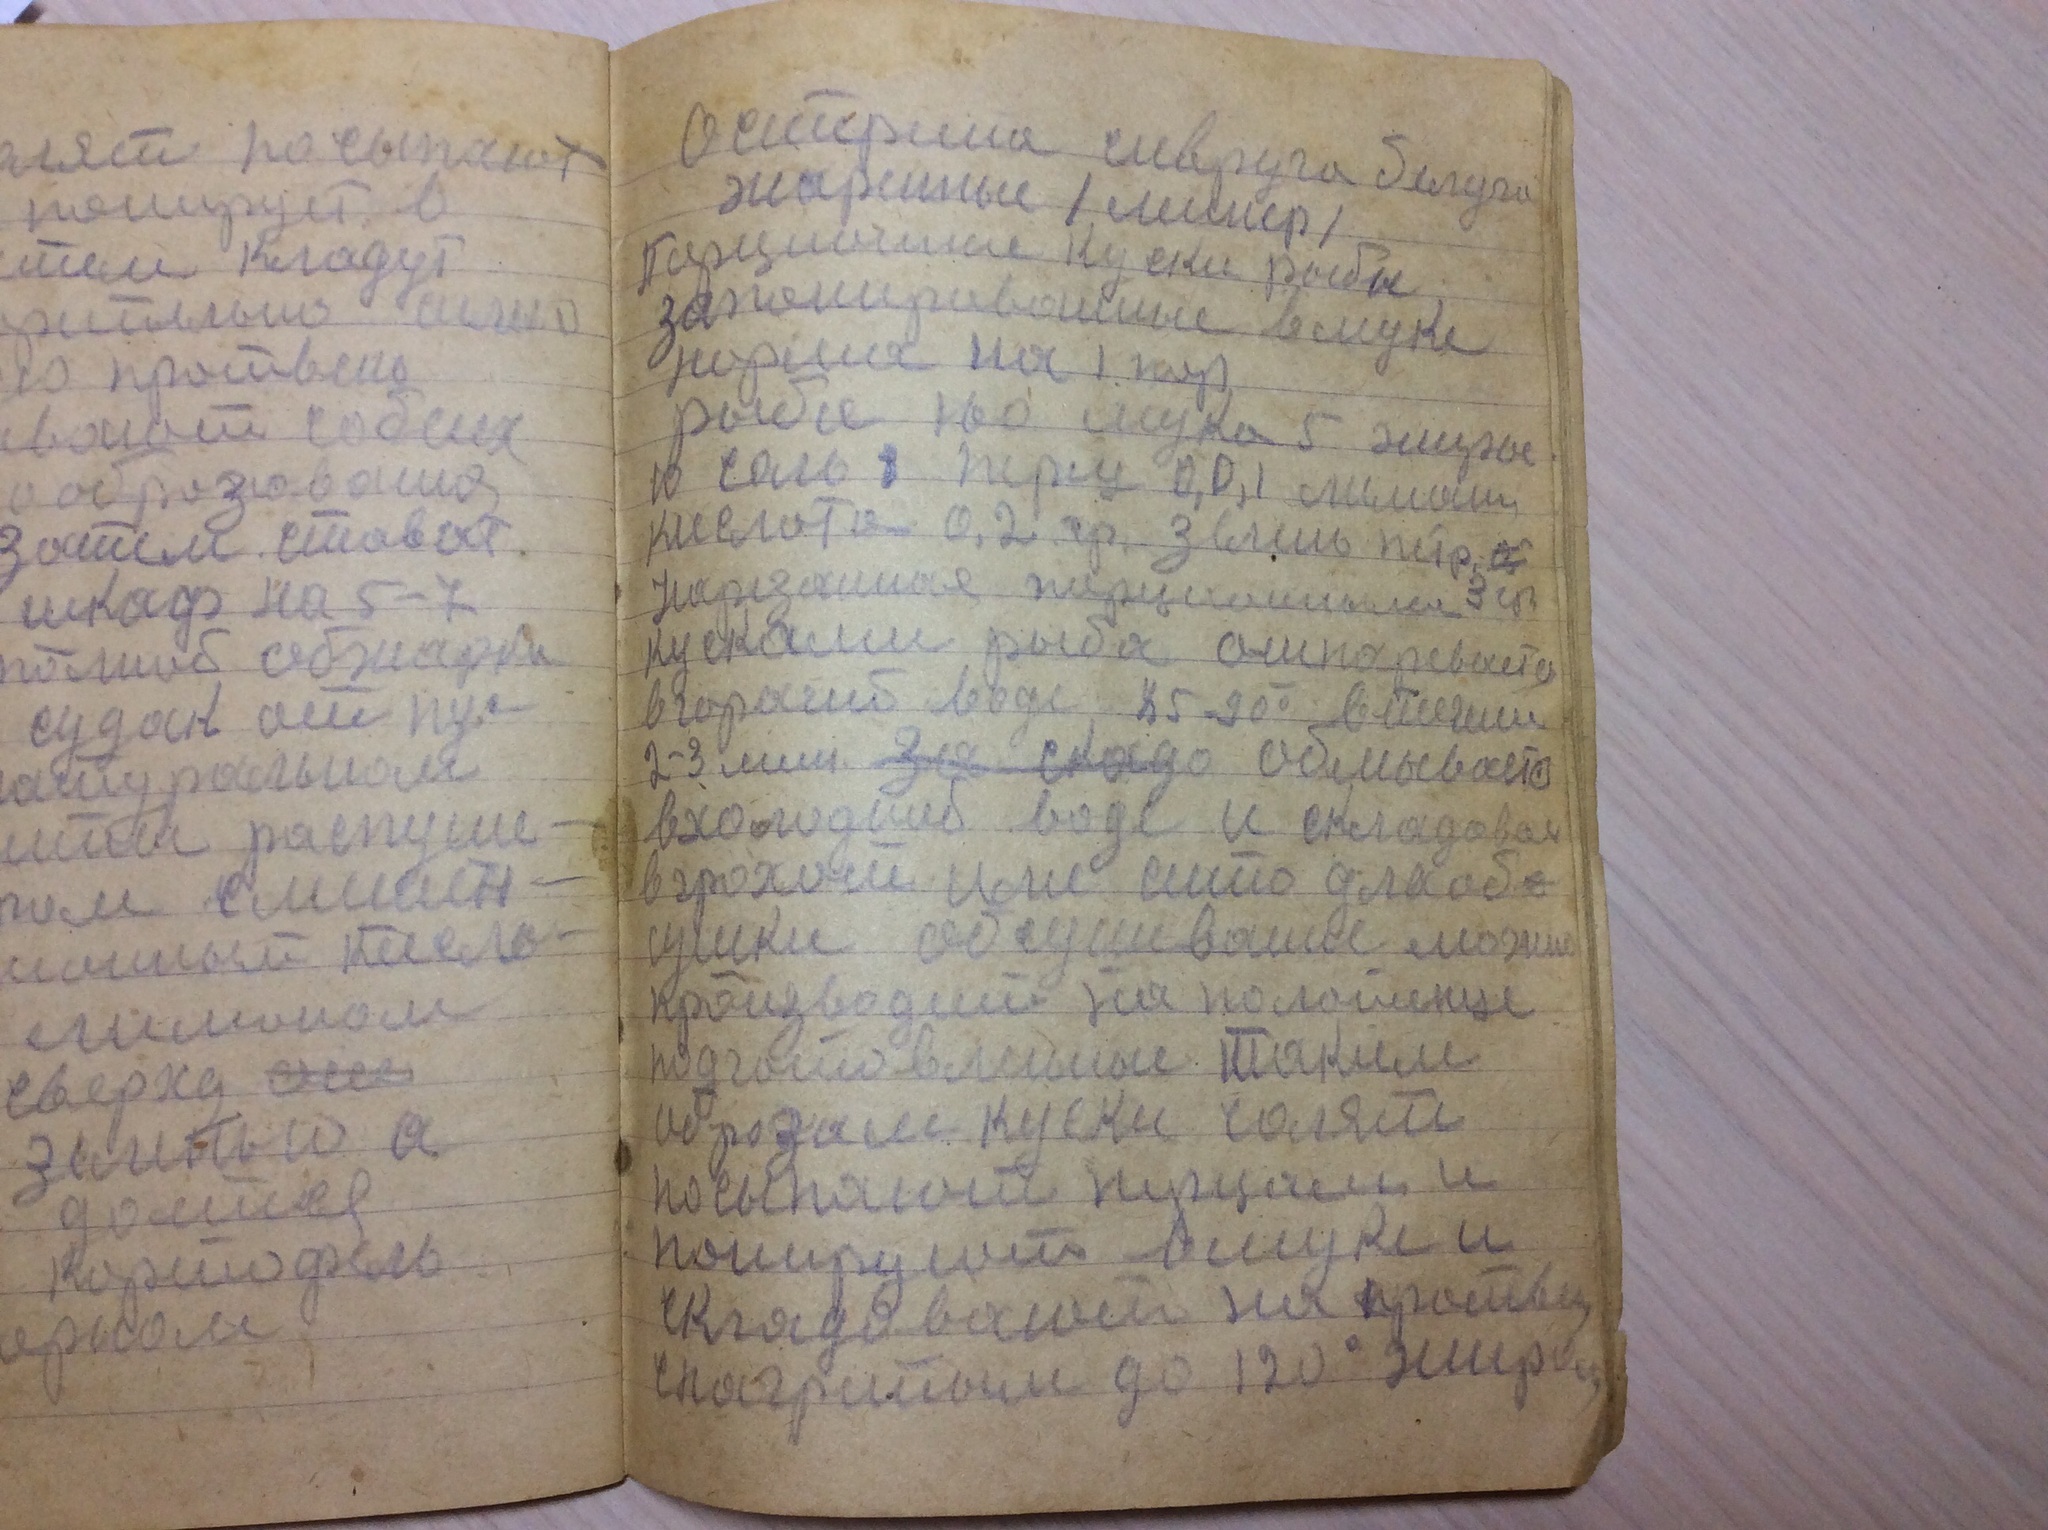 алят посыпают
понирует в
кладут
арительно сильно
го противень
вают собеих
ообразования
Затем ставят
шкаф на 5-7
полной обжарки
судак от пус-
натуральном
распуще-
лом смешен-
лимонный кисло-
лимоном
сверху
зеленью а
долтка
картофель
Осетрина севруга белуга
жаренные / мение /
Порционные куски рыбы,
запонированные вмуке
норма на 1 пор
рыбы мука 5 жиры
10 соль 1 перц 0,0,1 лимон
кислота 0,2 гр. Зелень петр.
Нарезанная порционными 3 гр
кусками рыба ошпаревается
вгорячей воде 85-90° втечении
2-3 мин обмывается
вхолодной воде и складовают
вгрохот или сито дляоб-
сушки обсушивание можно
производит на полотенце
подготовленные таким
образам куски солят
посыпают перцам и
понируют вмуке и
складовают на противен
снагретым до 120° жиром,